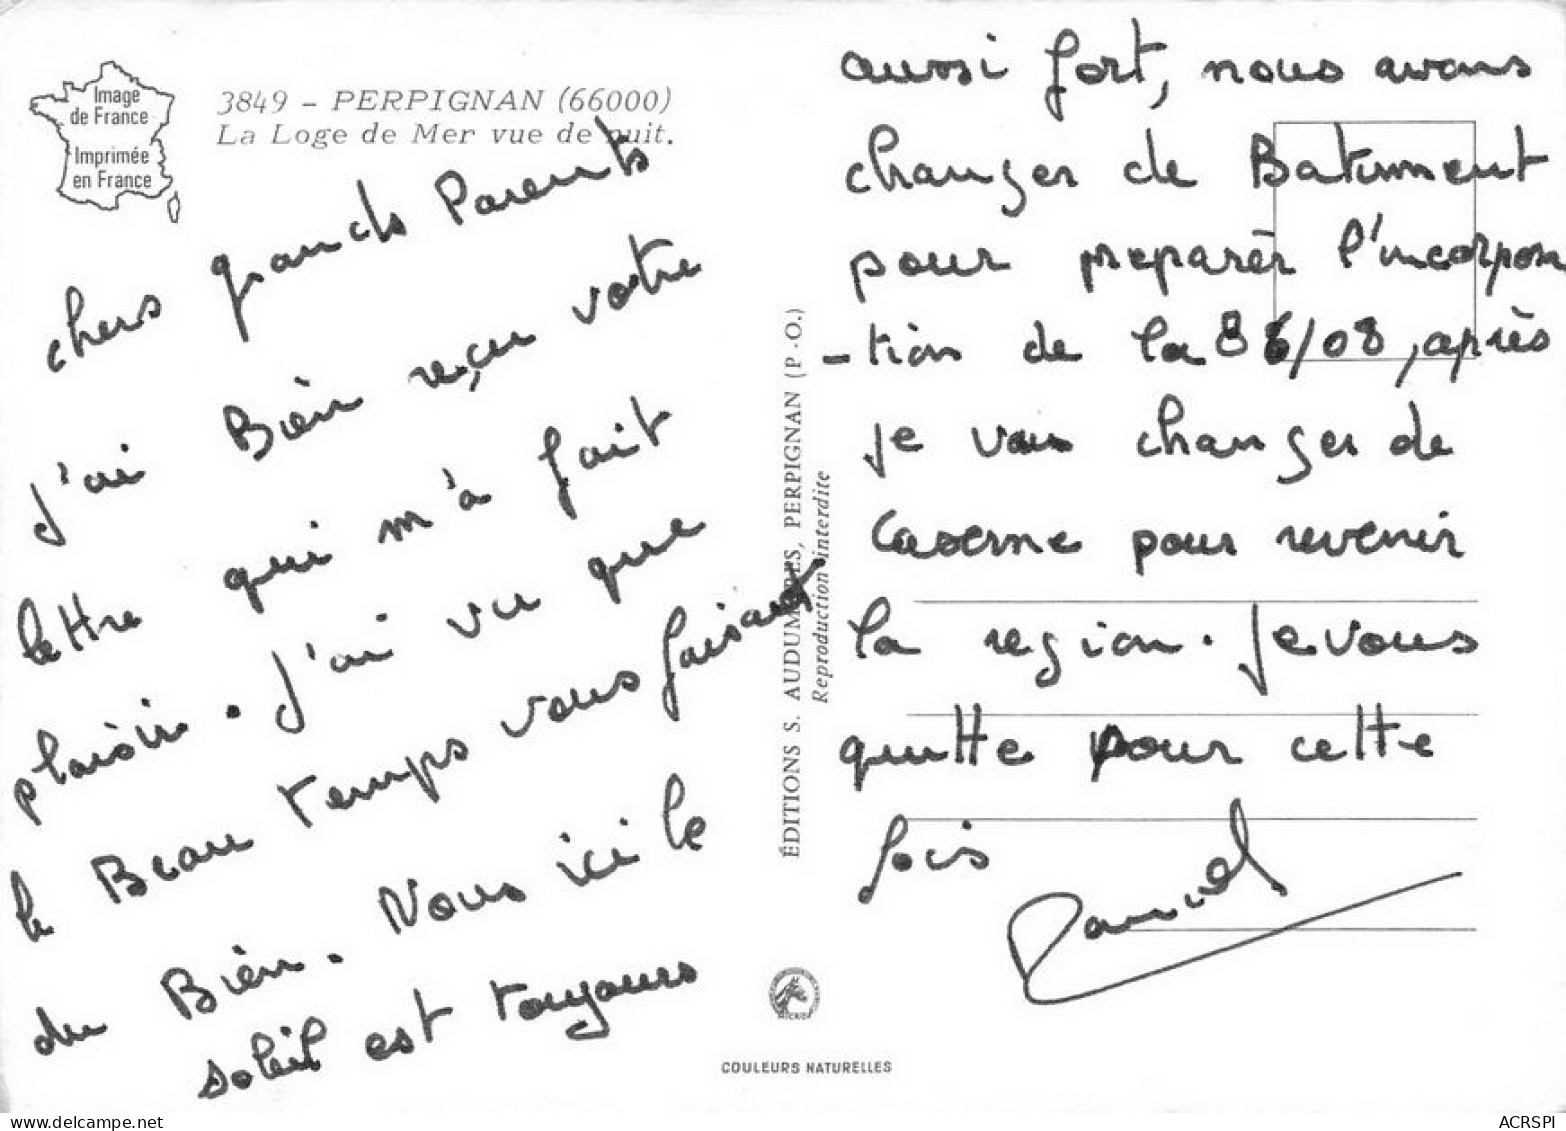 Image
de France
Imprimée
en France
3849 - PERPIGNAN (66000)
La Loge de Mer vue de nuit.
chers grands Parents
J'ai Bien reçu votre
lettre qui m'a fait
plaisir. J'ai vu que
le Beau temps vous faisait
du Bien. Nous ici le
soleil est toujours
ÉDITIONS S. AUDUMARES, PERPIGNAN (P.-O.)
Reproduction interdite
aussi fort, nous avons
changer de Batiment
pour preparèr l'incorpora
-tion de la 86/08, après
je vais changer de
Caserne pour revenir
la region. Je vous
quitte pour cette
fois
Daniel
MICKOF
COULEURS NATURELLES
delcampe.net
ACRSPI